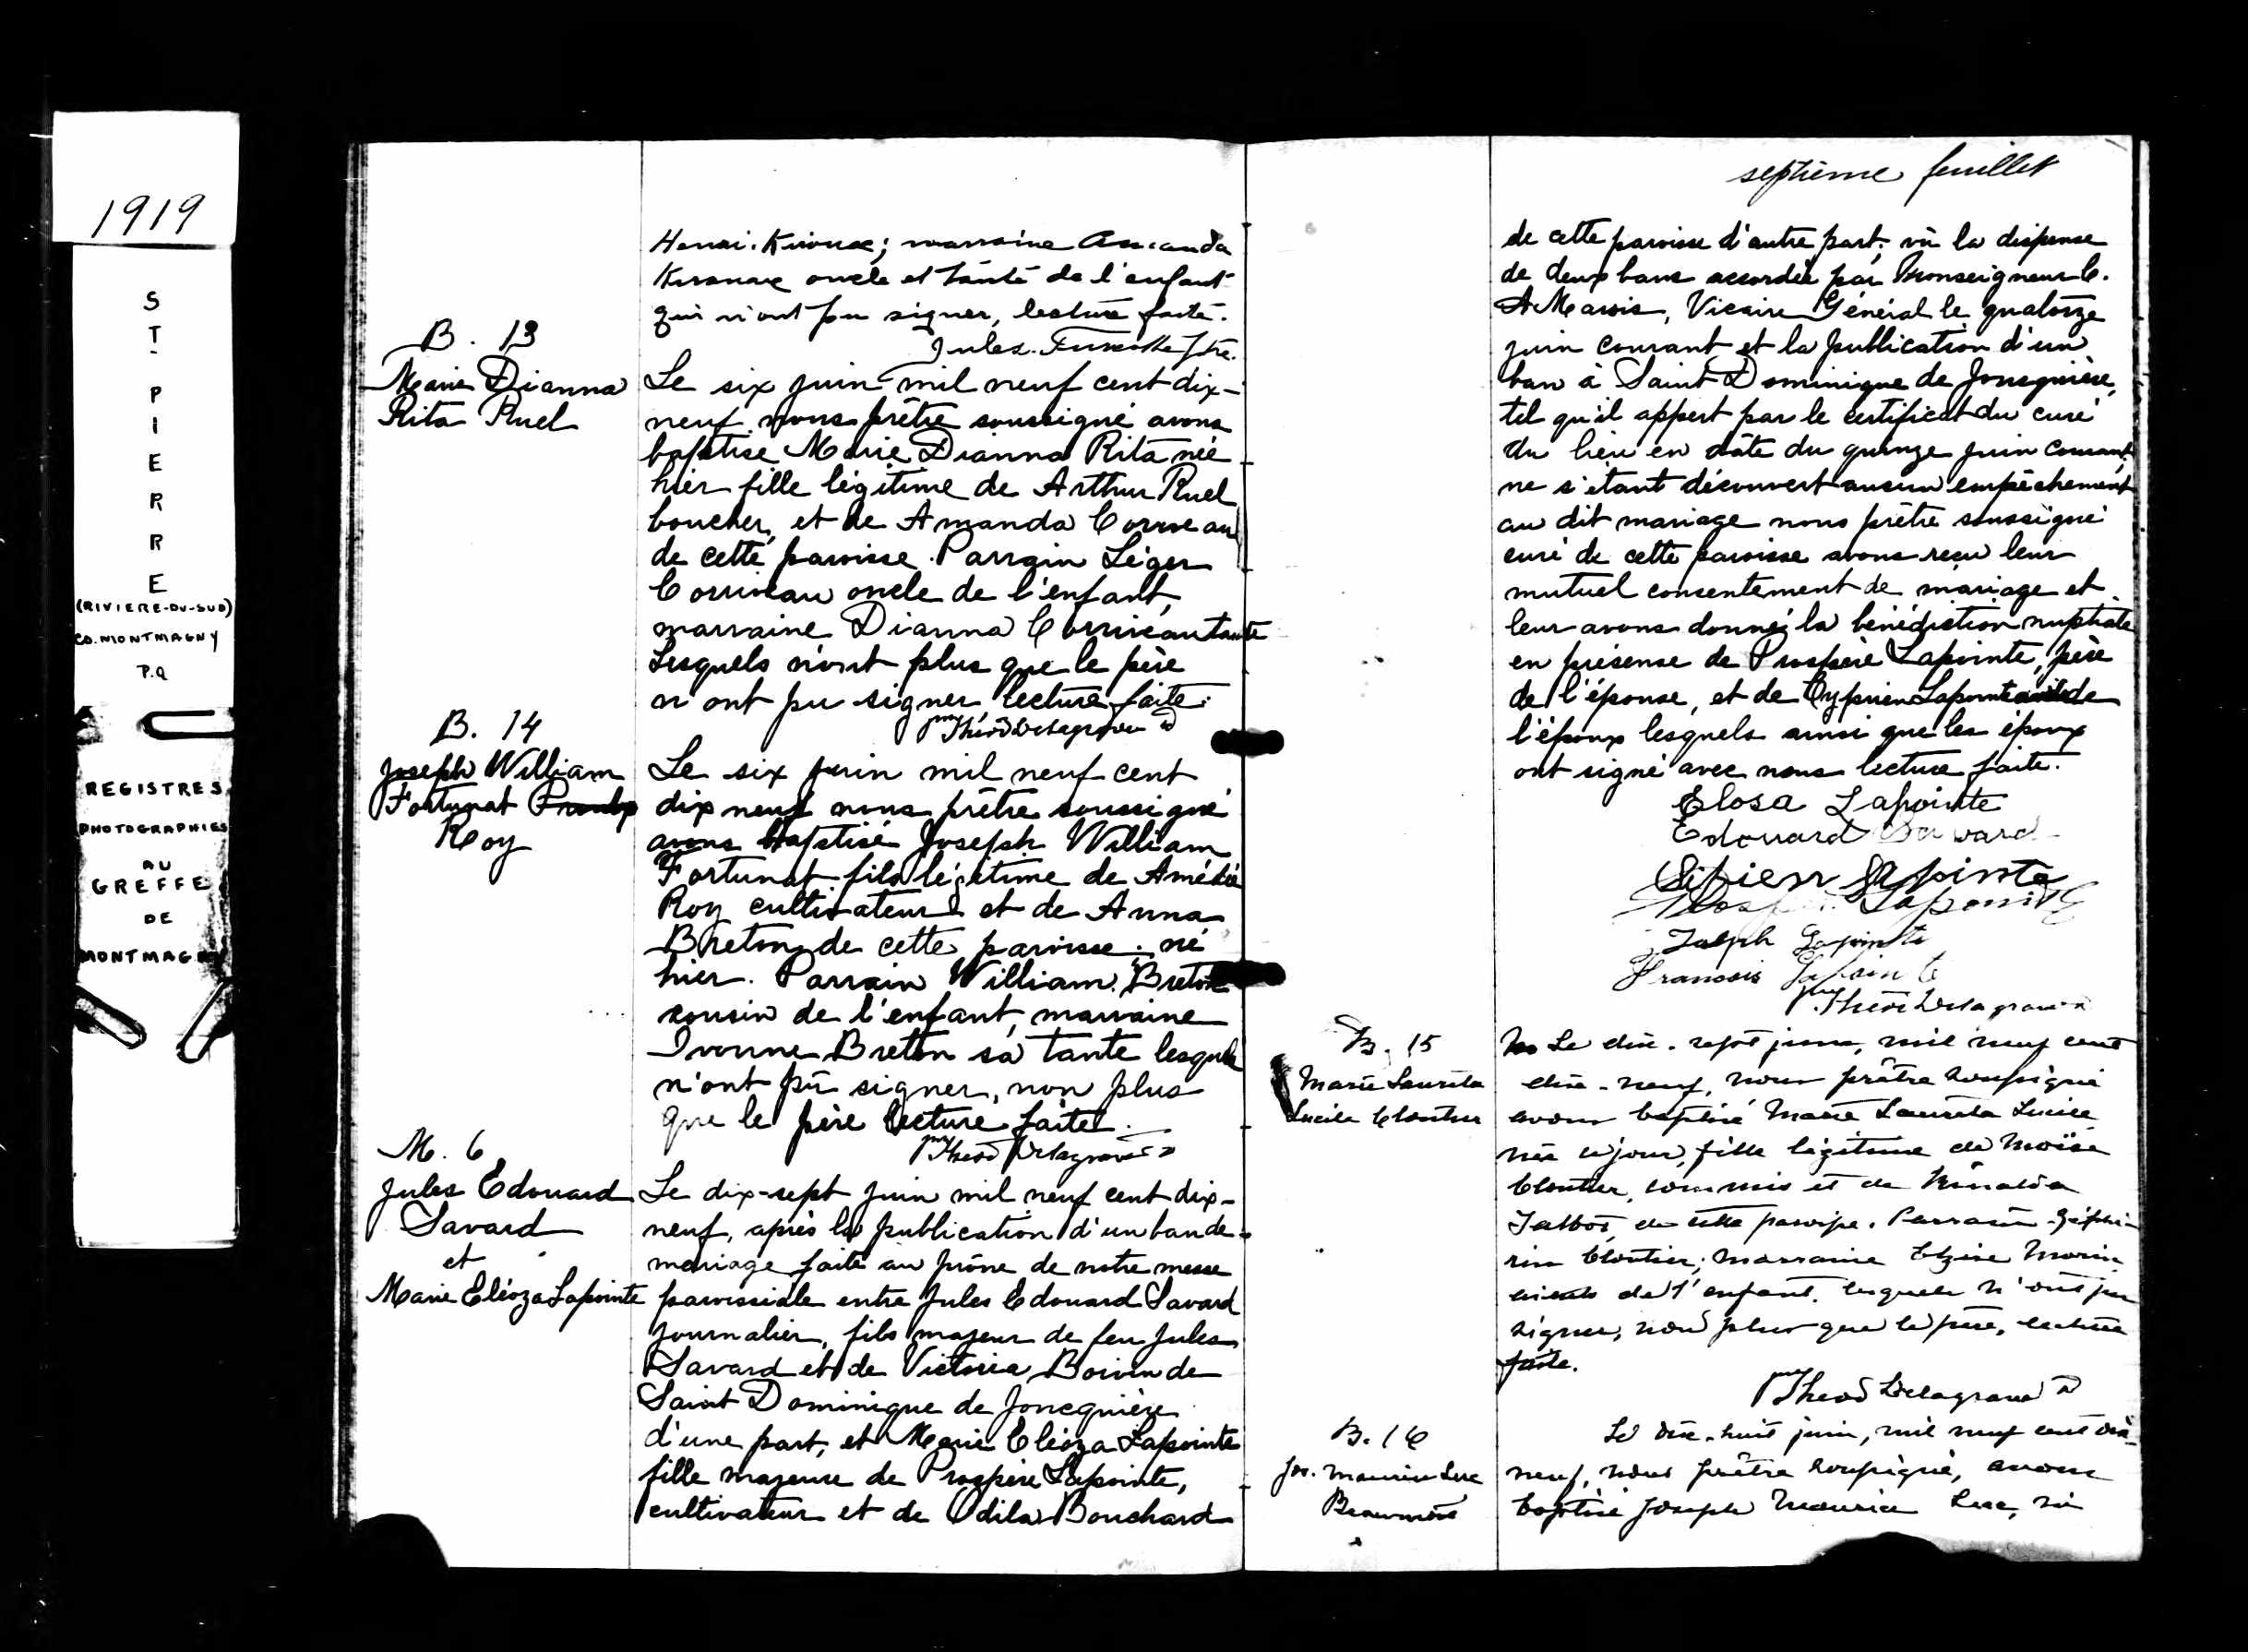 1919
ST-PIERRE
(RIVIERE-DU-SUD)
CO. MONTMAGNY
P.Q
REGISTRES
PHOTOGRAPHIES
AU
GREFFE
DE
MONTMAGNY
Henri Kirouac; marraine Amanda
Kirouac oncle et tante de l'enfant
qui n'ont pu signer, lecture faite.
Jules
B. 13
Marie Dianna
Rita Ruel
Le six juin mil neuf cent dix-
neuf nous prêtre soussigné avons
baptise Marie Dianna Rita née
hier fille légitime de Arthur Ruel
boucher, et de Amanda Corriveau
de cette paroisse. Parrain Léger
Corriveau oncle de l'enfant,
marraine Dianna Corriveau tante
Lesquels non plus que le père
n'ont pu signer lecture faite.
Théod Delagrave
B. 14
Joseph William
Fortunat Proulx
Roy
Le six juin mil neuf cent
dix neuf nous prêtre soussigné
avons baptisé Joseph William
Fortunat fils légitime de Amédée
Roy cultivateur et de Anna
Breton de cette paroisse né
hier. Parrain William Breton
cousin de l'enfant, marraine
Ivonne Breton sa tante lesquels
n'ont pu signer, non plus
que le père lecture faite.
Théod Delagrave
M. 6
Jules Edouard
Savard
et
Marie Eléoza Lapointe
Le dix-sept juin mil neuf cent dix-
neuf, après la publication d'un ban de
mariage faite au prône de notre messe
paroissiale entre Jules Edouard Savard
journalier, fils majeur de feu Jules
Savard et de Victoria Boivin de
Saint Dominique de Joncquière
d'une part, et Marie Eléoza Lapointe
fille majeure de Prospère Lapointe,
cultivateur et de Odila Bouchard
septième feuillet
de cette paroisse d'autre part; vu la dispense
de deux bans accordée par Monseigneur C.
A Marois, Vicaire Général le quatorze
juin courant et la publication d'un
ban à Saint Dominique de Joncquière,
tel qu'il appert par le certificat du curé
du lieu en date du quinze juin courant,
ne s'étant découvert aucun empêchement
au dit mariage nous prêtre soussigné
curé de cette paroisse avons reçu leur
mutuel consentement de mariage et
leur avons donné la bénédiction nuptiale
en présense de Prospère Lapointe, père
de l'épouse, et de Cyprien Lapointe de
l'époux lesquels ainsi que les époux
ont signé avec nous lecture faite.
Elosa Lapointe
Edouard Savard
Sipien Lapointe
Lapointe
Joseph Lapointe
Francois Lapointe
Théod Delagrave
B. 15
Marie Lauréta
Lucile Cloutier
Le dix-sept juin, mil neuf cent
dix-neuf, nous prêtre soussigné
avons baptisé Marie Lauréta Lucile
née ce jour, fille légitime de Moïse
Cloutier, commis et de
Talbot de cette paroisse. Parrain Zéphi-
rin Cloutier; marraine Elzire Morin
aieuls de l'enfant, lesquels n'ont pu
signer, non plus que le père, lecture
faite.
Théod Delagrave
B. 16
Jos. Maurice Luc
Beaumont
Le dix-huit juin, mil neuf cent dix-
neuf, nous prêtre soussigné, avons
baptisé Joseph Maurice Luc, né